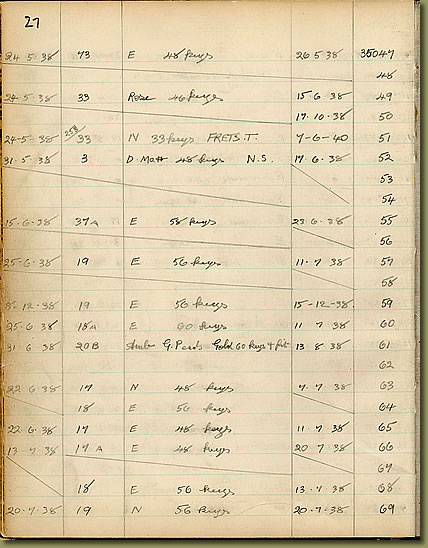 27
24 5 38 73 E 48 keys 26 5 38 35047
48
24 5 38 33 Rose 46 keys 15 6 38 49
17 10 38 50
24-5-38 25B 33 N 33 keys FRETS.T. 7-6-40 51
31.5.38 3 D. Matt 48 keys N.S. 17 6 38 52
53
54
15.6.38 37A E 58 keys 23 6 38 55
56
25-6-38 19 E 56 keys 11.7.38 57
58
12-38 19 E 56 keys 15-12-38 59
25-6-38 18A E 60 keys 11 7 38 60
31 6 38 20B G. Gold 60 keys 13 8 38 61
62
22 6 38 17 N 48 keys 7.7.38 63
18 E 56 keys 64
22 6.38 17 E 48 keys 11.7 38 65
13.7.38 17 A E 48 keys 20 7 38 66
67
18 E 56 keys 13.7.38 68
20.7.38 19 N 56 keys 20.7.38 69